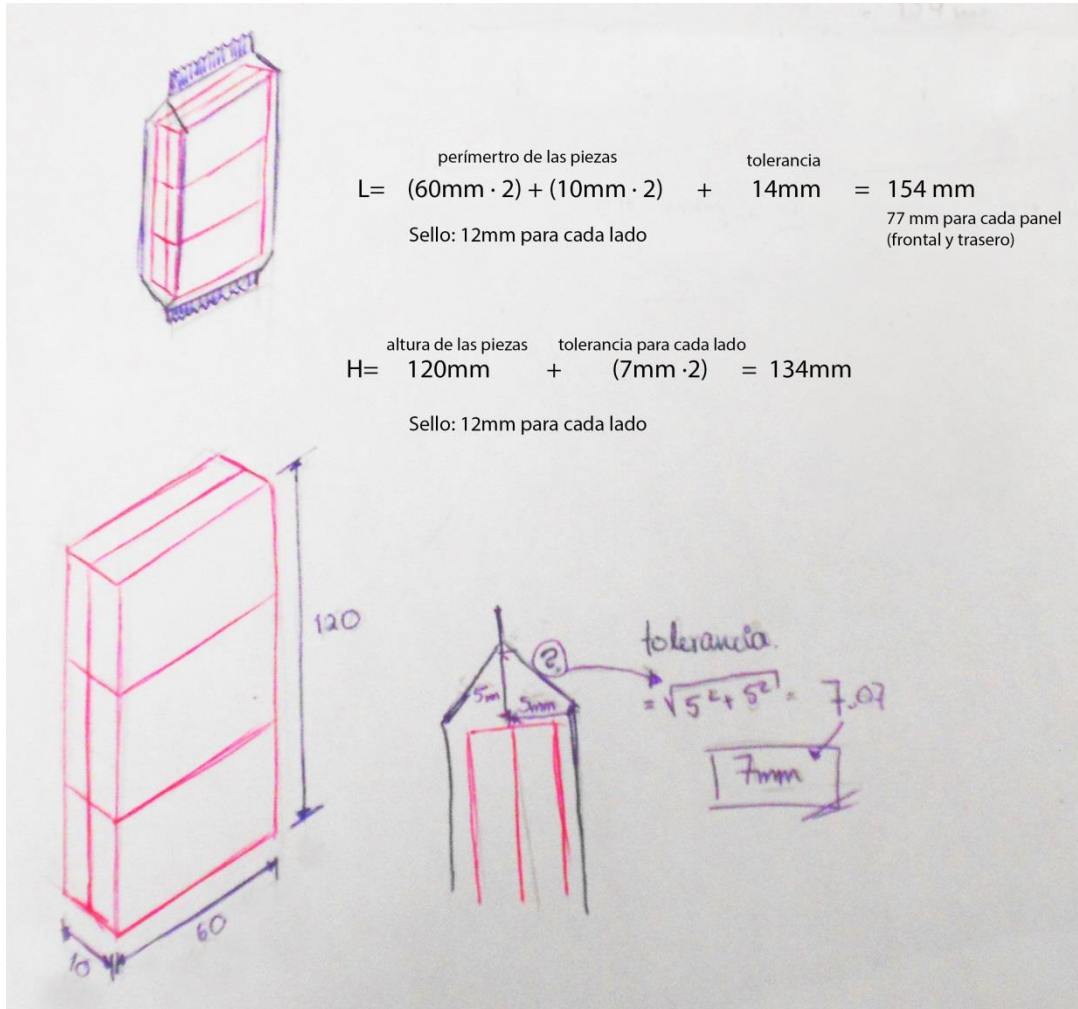 perímertro de las piezas tolerancia
L= (60mm · 2) + (10mm · 2) + 14mm = 154 mm
Sello: 12mm para cada lado
77 mm para cada panel
(frontal y trasero)
altura de las piezas tolerancia para cada lado
H= 120mm + (7mm ·2) = 134mm
Sello: 12mm para cada lado
120
60
10
?
5m
5mm
tolerancia.
= √5²+5² = 7.07
7mm